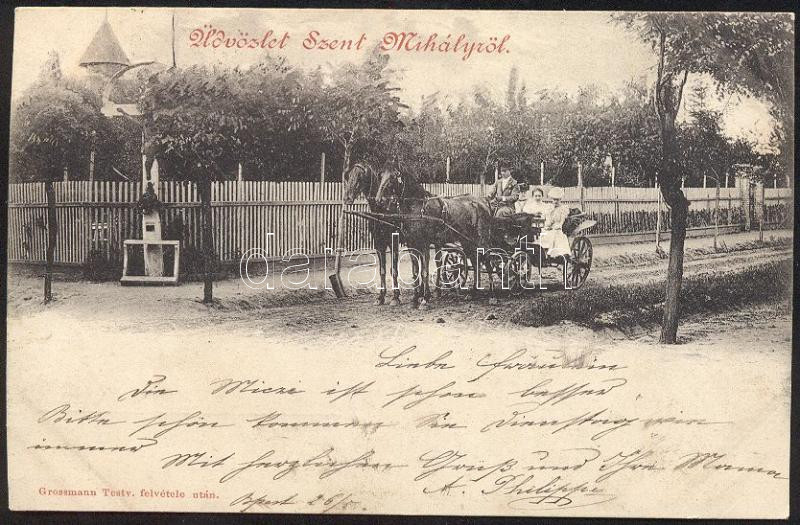 Üdvözlet Szent Mihályról.
darabanth.com
Liebe Fräulein
Die Miczi ist schon besser
Bitte schön kommen Sie Dienstag wie
immer
Mit herzlichen Gruß und Ihre Mama
A. Philippe
Grossmann Testv. felvétele után.
Bpest 26/5.